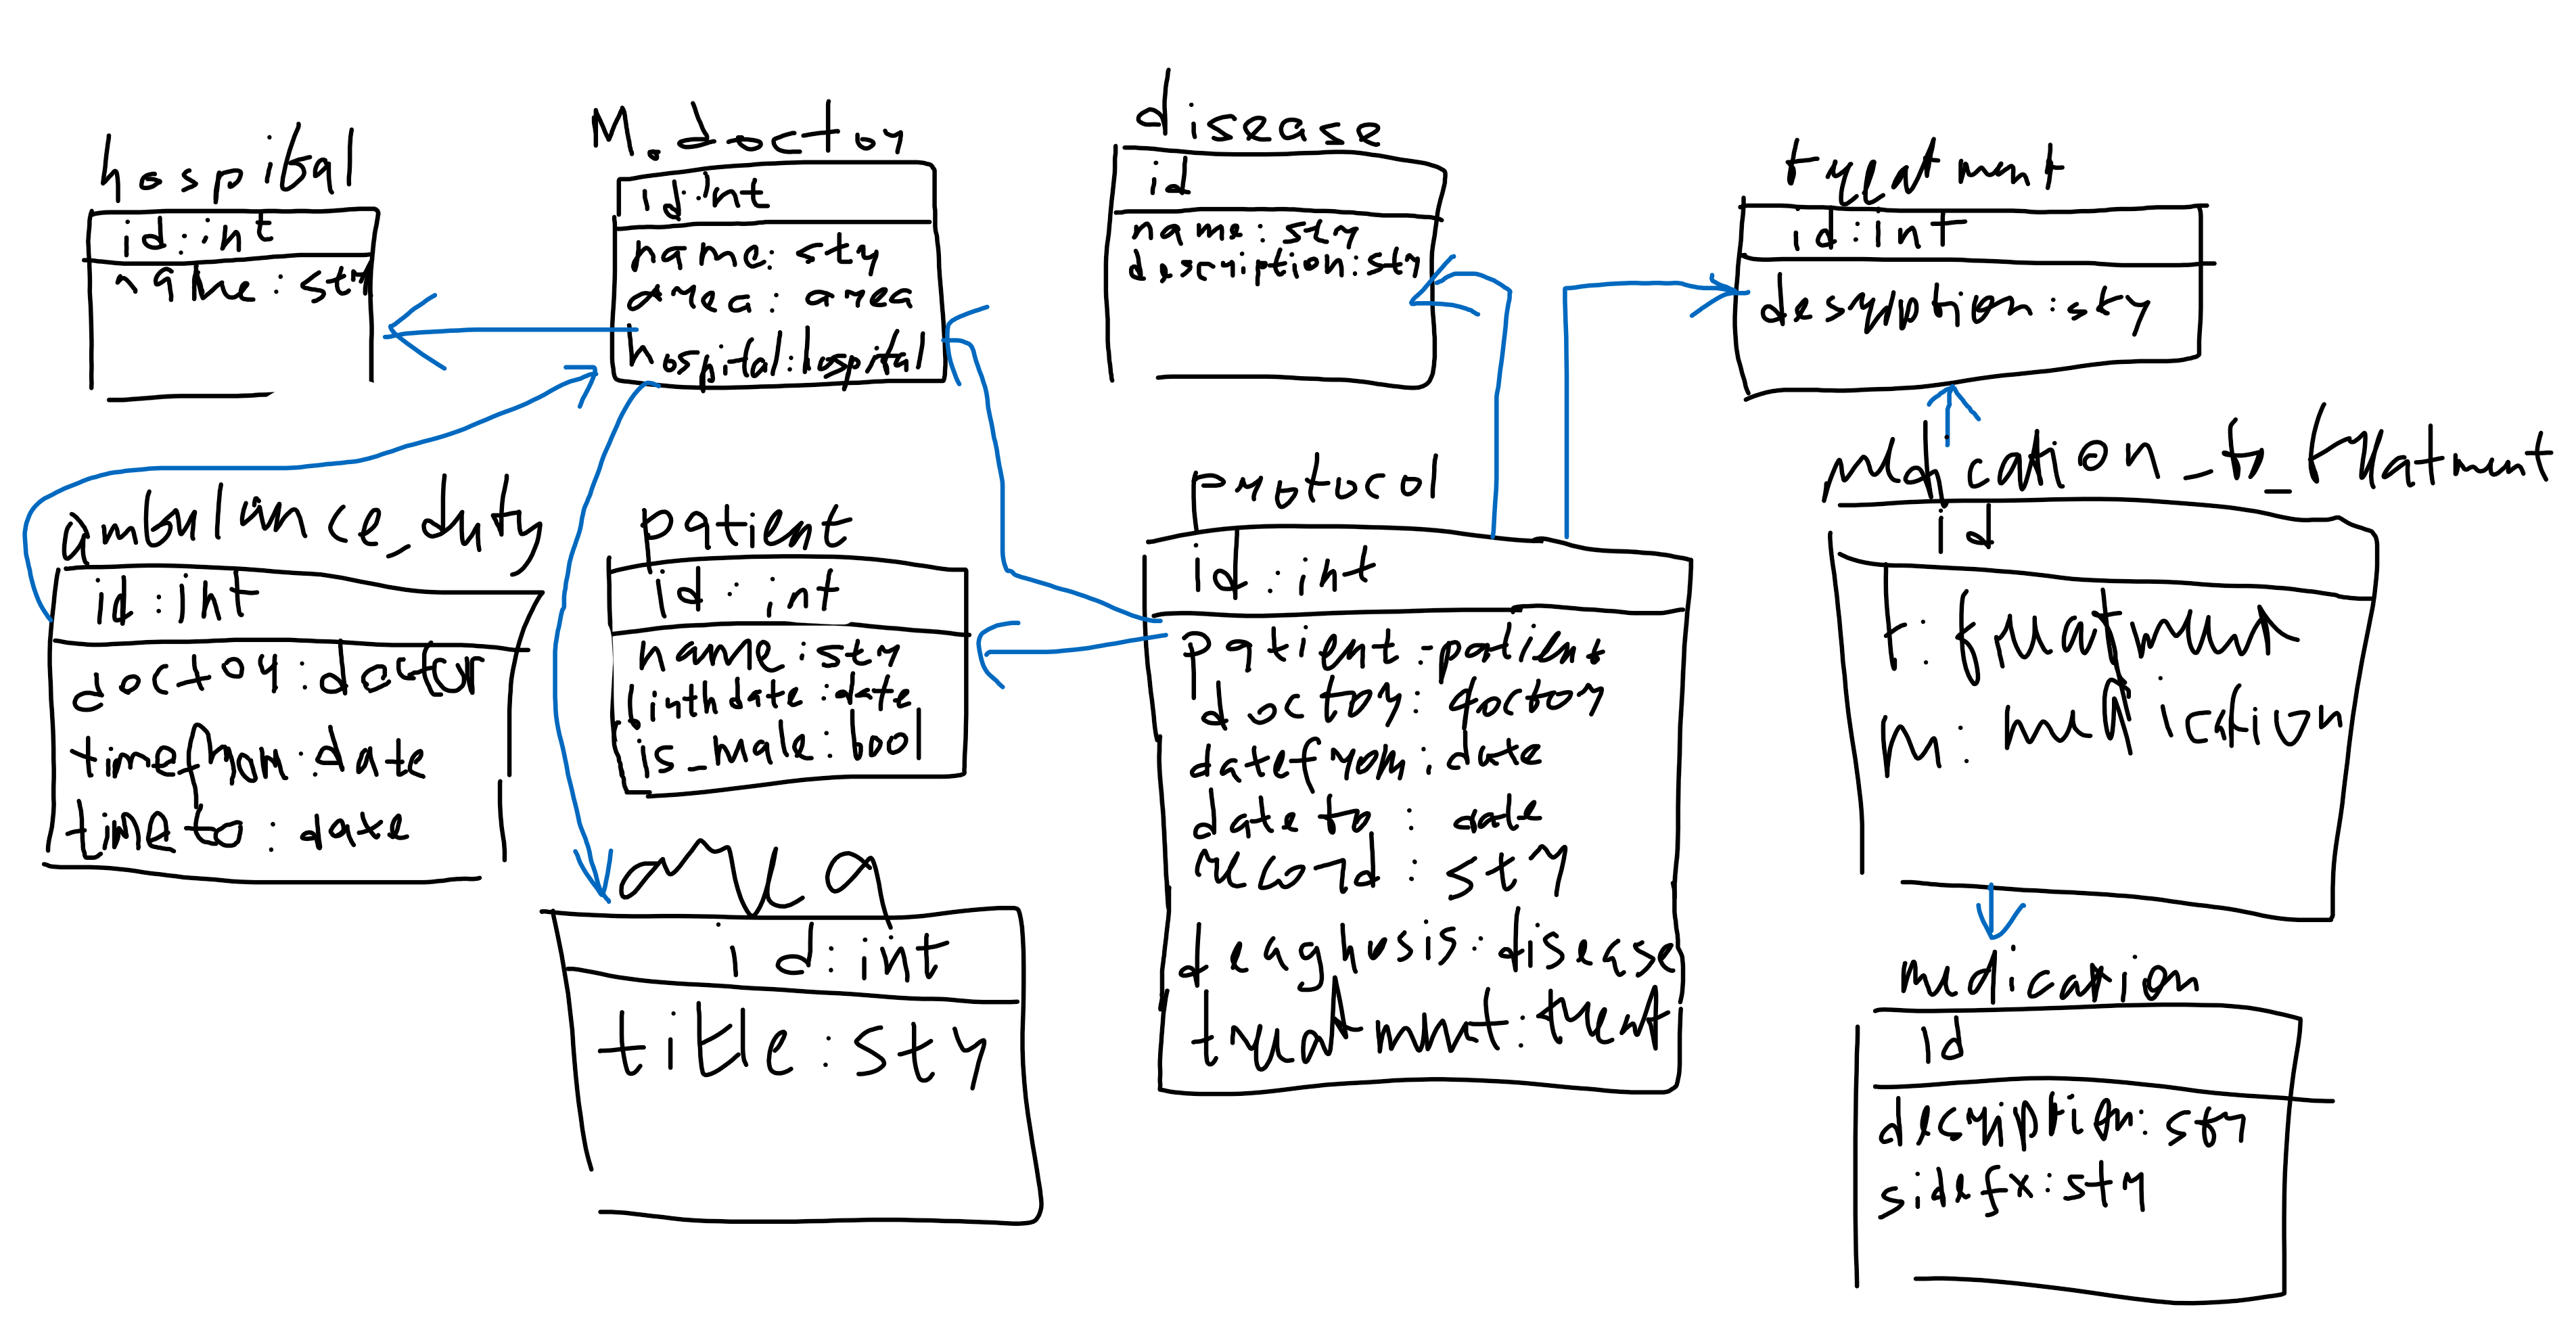 hospital
id:int
name:str
M.doctor
id:int
name:str
area:area
hospital:hospital
disease
id
name:str
description:str
treatment
id:int
description:str
ambulance_duty
id:int
doctor:doctor
timefrom:date
timeto:date
patient
id:int
name:str
birthdate:date
is_male:bool
area
id:int
title:str
protocol
id:int
patient:patient
doctor:doctor
datefrom:date
dateto:date
record:str
deagnosis:disease
treatment:treat
medication_to_treatment
id
t:treatment
m:medication
medication
id
description:str
sidefx:str